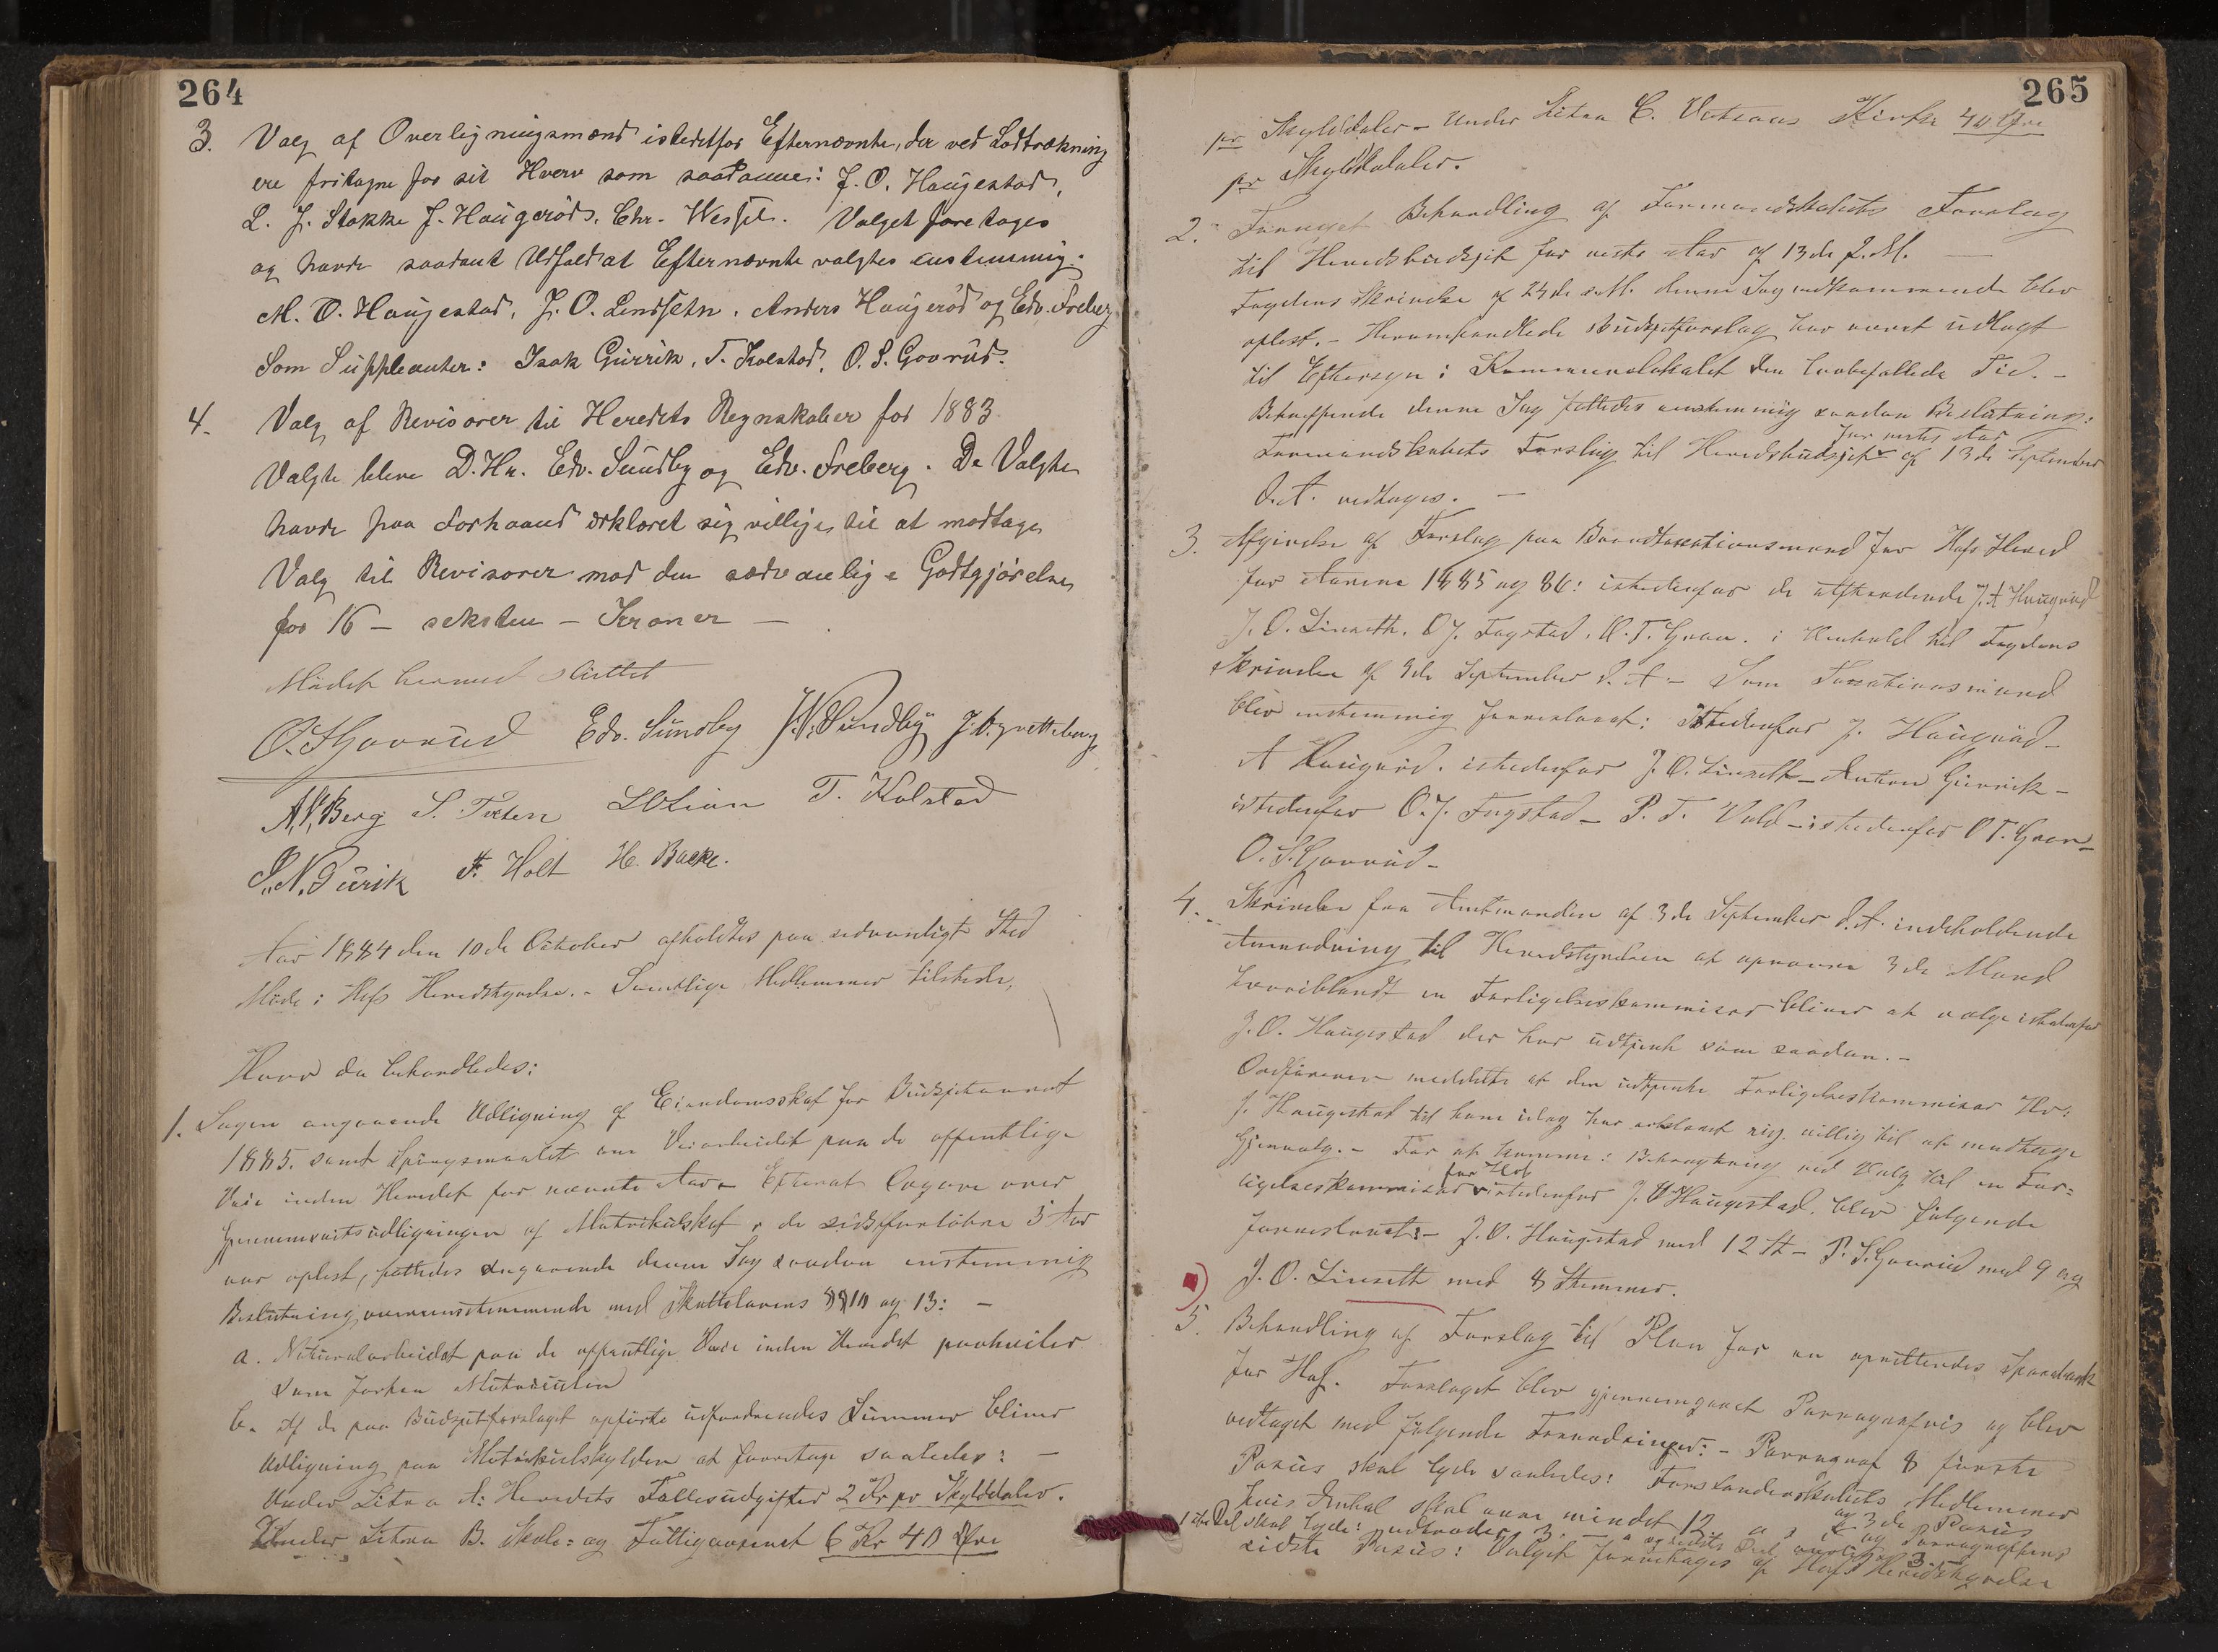 264
3. Valg af Overligningsmænd istedetfor Efternævnte, der ved Lodtrækning
ere fritagne for sit Hverv som saadanne: J. O. Haugestad,
L. J. Stokke J. Haugerød, Chr. Wessel. Valget foretages
og havde saadant Udfald at Efternævnte valgtes enstemmig:
M. O. Haugestad, J. O. Lindseth, Anders Haugerød og Edv. Freberg
Som Suppleanter: Isak Gurrik, T. Kolstad, O. S. Govrud.
4. Valg af Revisorer til Heredets Regnskaber for 1883
Valgte bleve D.Hr. Edv. Sundby og Edv. Freberg. De Valgte
havde paa Forhaand erklæret sig villige til at modtage
Valg til Revisorer mod den sædvanlige Godtgjørelse
for 16 – seksten – Kroner –
Mødet hermed sluttet
O. S. Govrud Edv. Sundby J. N. Sundby J. A. Gretteberg
A. N. Berg S. Toten L O Lian T. Kolstad
I. N. Gurik F. Holt H. Backe.
Aar 1884 den 10de Oktober afholdtes paa sædvanligt Sted
Møde i Hofs Heredstyrelse. – Samtlige Medlemmer tilstede,
Hvor da behandledes:
1. Sagen angaaende Udligning af Eiendomsskat for Budgetaaret
1885. samt Spørgsmaalet om Veiarbeidet paa de offentlige
Veie inden Heredet for nævnte Aar. Efterat Opgave over
Gjennemsnitsudligningen af Matrikulskat i de sidstforløbne 3 Aar
var oplest, fattedes angaaende denne Sag saadan enstemmig
Beslutning overensstemmende med Skattelovens §§ 10 og 13: –
a. Naturalarbeidet paa de offentlige Veie inden Heredet paahviler
som forhen Matrikulen
b. Af de paa Budgetforslaget opførte udfordrendes Summer bliver
Udligning paa Matrikulskylden at foretage saaledes: –
Under Litra A: Heredets Fællesudgifter 2 Kr pr Skylddaler.
Under Litra B. Skole- og Fattigvæsenet 6 Kr 40 Øre
265
pr Skylddaler – Under Litra C. Kirke 40 Øre
pr Skylddaler.
2. Behandling af Formandskabets Forslag
til Heredsbudgjet for neste Aar af 13de f. M. –
Fogdens Skrivelse af 24de s.M. denne Sag vedkommende blev
oplest. – Heromhandlede Budgetforslag har været udlagt
til Eftersyn i Kommunelokalet den lovbefallede Tid. –
Betreffende denne Sag fattedes enstemmig saadan Beslutning:
for neste Aar
Formandskabets Forslag til Heredsbudgjet af 13de September
d.A. vedtages. –
3. Afgivelse af Forslag paa Brandtaxationsmænd for Hofs Hered
for Aarene 1885 og 86: istedenfor de aftrædende J. A Haugerød
J. O. Linseth. O J. Fogstad. O. T. Gran. i Henhold til Fogdens
Skrivelse af 9de September d. A – Som Taxationsmænd
blev enstemmig foreslaaet: Istedenfor J. Haugerød –
A Haugerød. istedenfor J. O. Linseth – Anton Gurrik –
istedenfor O. J. Fogstad – P. T. Vold – istedenfor O T. Gran –
O. S. Govrud –
4. Skrivelse fra Amtmanden af 3de September d. A. indeholdende
Anmodning til Heredstyrelsen at opnævne 3de Mænd
hvoriblandt en Forligelseskommisær bliver at vælge istedenfor
J. O. Haugestad der har udtjent som saadan. –
Ordføreren meddelte at den udtjente Forligelseskommisær Hr:
J. Haugestad til ham idag har erklæret sig villig til at modtage
Gjenvalg. – For at komme i Betragtning ved Valg til en For=
for Hof
ligelseskommisær istedenfor J. O Haugestad. blev følgende
foreslaaet: – J. O. Haugestad med 12 St – P. S. Govrud med 9 og
J. O. Linseth med 8 Stemmer.
5. Behandling af Forslag til Plan for en oprettendes Sparebank
for Hof. Forslaget blev gjennemgaaet Paragrafvis og blev
vedtaget med følgende Forandringer: – Paragraf 8 første
Passus skal lyde saaledes: Forstanderskabets Medlemmer
hvis Antal skal være mindst 12
og 3de Passus
1ste Del skal lyde: udtræder 3. – og Paragraphens
sidste Passus: Valget foretages af Hofs Heredstyrelse